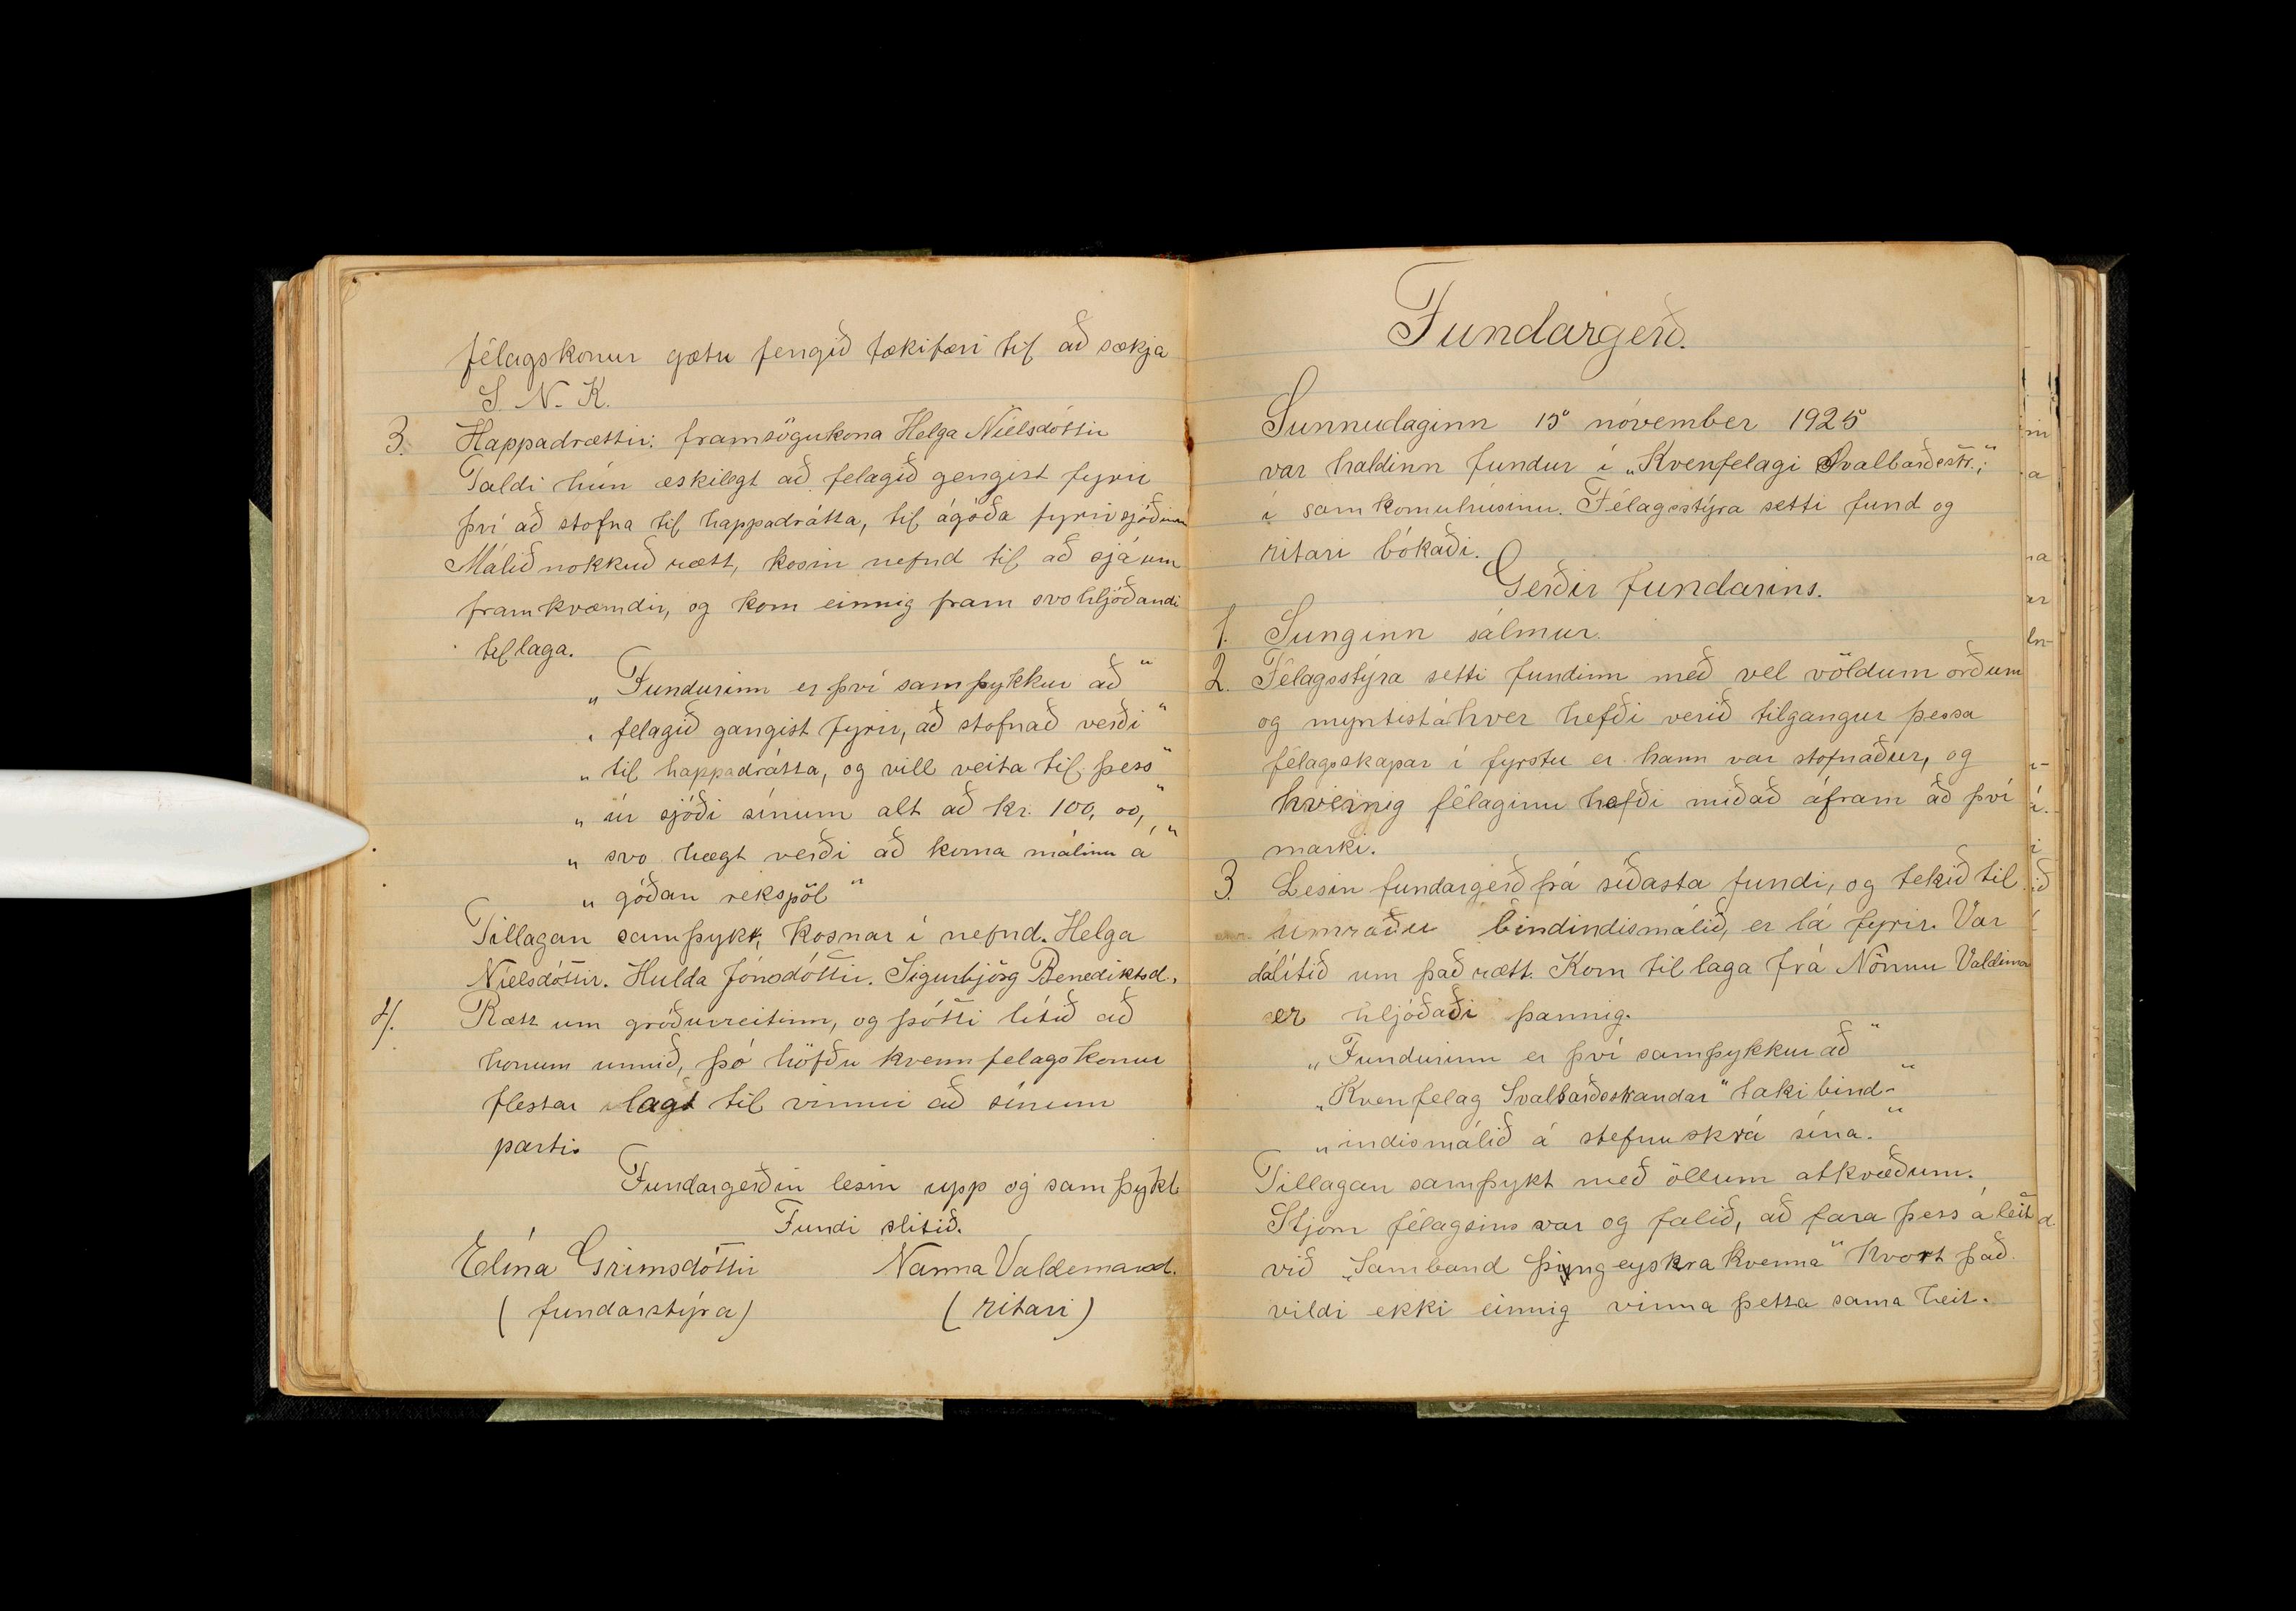 félagskonur gætu fengið tækifæri til að sækja
S. N. K.
3. Happadrættir: framsögukona Helga Níelsdóttir
Taldi hún æskilegt að felagið gengist fyrir
því að stofna til happadrátta, til ágóða fyrir sjóðinn
Málið nokkuð rætt, kosin nefnd til að sjá um
framkvæmdir, og kom einnig fram svohljóðandi
tillaga.
„Fundurinn er því samþykkur að“
„felagið gangist fyrir, að stofnað verði“
„til happadrátta, og vill veita til þess“
„úr sjóði sínum alt að kr. 100,00,“
„svo hægt verði að koma málinu á“
„góðan rekspöl“
Tillagan samþykt, Kosnar í nefnd. Helga
Níelsdóttir. Hulda Jónsdóttir. Sigurbjörg Benediktsd.
4. Rætt um gróðurreitinn, og þótti lítið að
honum unnið, þó höfðu kvennfelagskonur
flestar lagt til vinnu að sínum
parti.
Fundargerðin lesin upp og samþykt
Fundi slitið.
Elína Grímsdóttir Nanna Valdemarsd.
(fundarstýra) (ritari)
Fundargerð.
Sunnudaginn 15 nóvember 1925
var haldinn fundur í „Kvenfelagi Svalbarðsstr.;“
í samkomuhúsinu. Félagsstýra setti fund og
ritari bókaði.
Gerðir fundarins.
1. Sunginn sálmur.
2. Félagsstýra setti fundinn með vel völdum orðum
og myntist á hver hefði verið tilgangur þessa
félagsskapar í fyrstu er hann var stofnaður, og
hvernig félaginu hefði miðað áfram að því
marki.
3. Lesin fundargerð frá síðasta fundi, og tekið til
umræðu bindindismálið, er lá fyrir. Var
dálítið um það rætt. Kom tillaga frá Nönnu Valdima
er hljóðaði þannig.
„Fundurinn er því samþykkur að“
„Kvenfelag Svalbarðsstrandar“ taki bind-“
„indismálið á stefnuskrá sína.“
Tillagan samþykt með öllum atkvæðum.
Stjorn félagsins var og falið, að fara þess á leit
við „Samband þingeyskra kvenna“ hvort það
vildi ekki einnig vinna þetta sama heit.